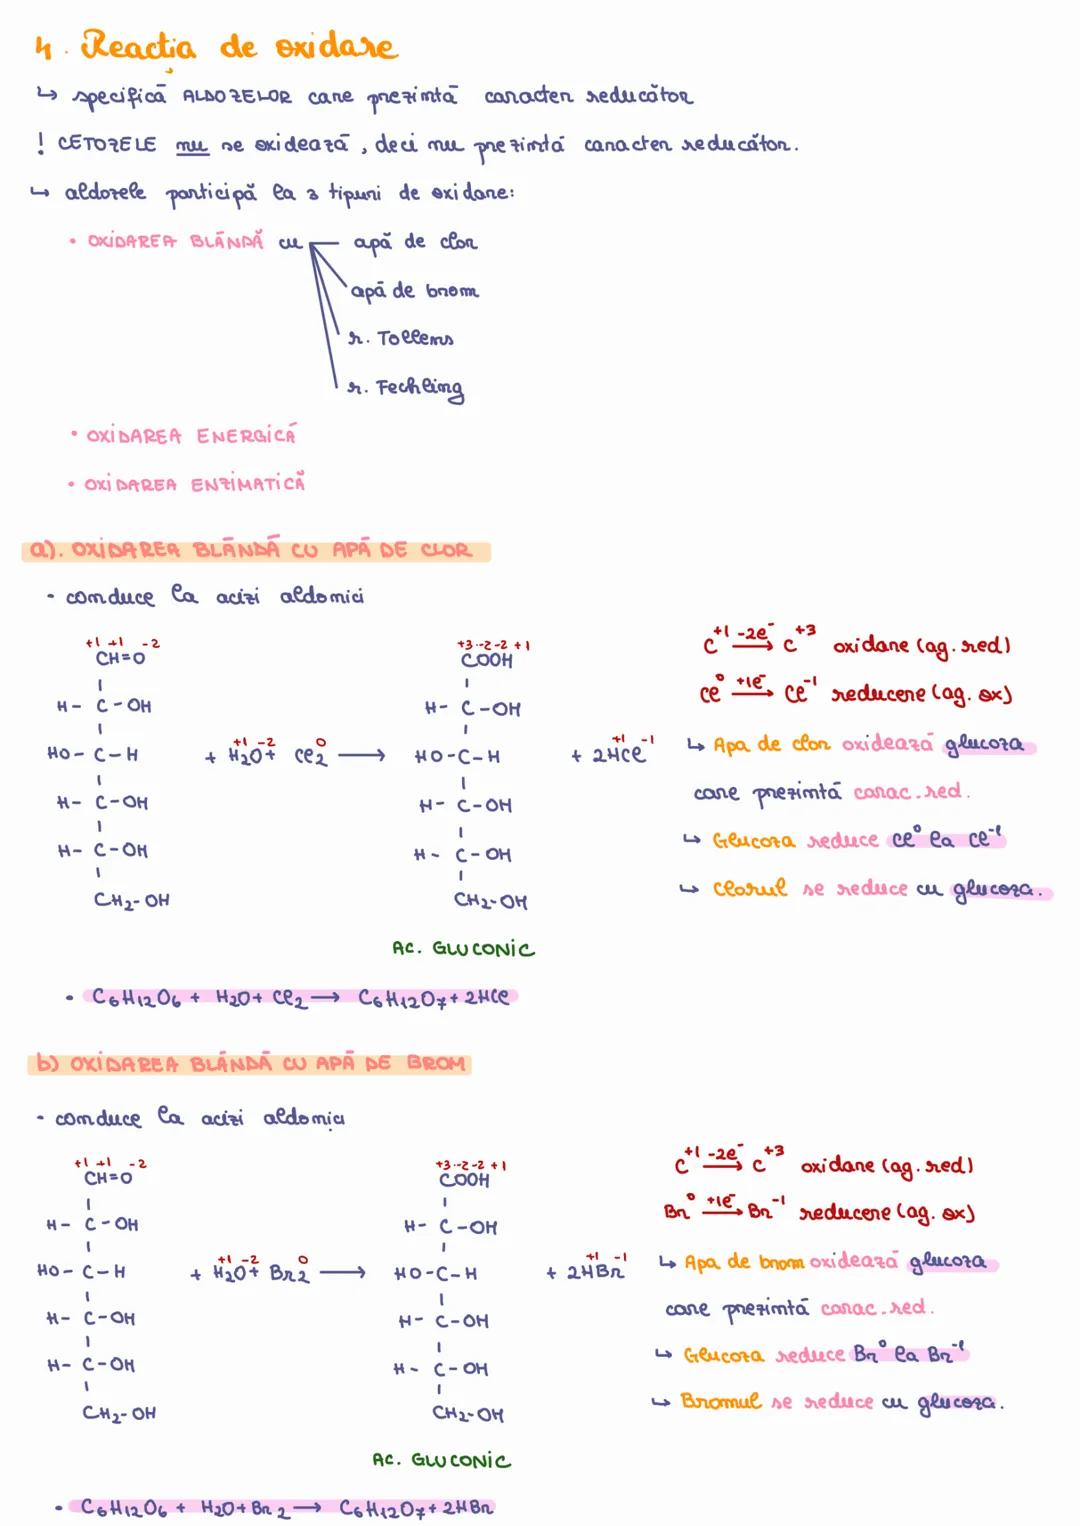 4. Reacția de oxidare
↳ specifică ALDOZELOR care prezintă caracter reducător
! CETOZELE nu se oxidează, deci nu prezintă caracter reducător.
↳ aldozele participă la 3 tipuri de oxidare:
• OXIDAREA BLÂNDĂ cu apă de clor
apă de brom
r. Tollens
r. Fechling
• OXIDAREA ENERGICĂ
• OXIDAREA ENZIMATICĂ
a). OXIDAREA BLÂNDĂ CU APĂ DE CLOR
- conduce la acizi aldonici
+1 +1 -2
CH=O
H- C-OH
HO-C-H
H- C-OH
H- C-OH
CH2-OH
+1 -2 0
+ H2O+ Cl2 ⟶
+3 -2 -2 +1
COOH
H- C-OH
HO-C-H
H- C-OH
H- C-OH
CH2-OH
+1 -1
+ 2HCl
AC. GLUCONIC
C+1 -2e-⟶ C+3 oxidare (ag. red)
Cl0 +1e-⟶ Cl-1 reducere (ag. ox)
↳ Apa de clor oxidează glucoza
care prezintă carac. red.
↳ Glucoza reduce Cl0 la Cl-1
↳ Clorul se reduce cu glucoza.
• C6H12O6 + H2O+ Cl2 ⟶ C6H12O7+ 2HCl
b) OXIDAREA BLÂNDĂ CU APĂ DE BROM
- conduce la acizi aldonici
+1 +1 -2
CH=O
H- C-OH
HO-C-H
H- C-OH
H- C-OH
CH2-OH
+1 -2 0
+ H2O+ Br2 ⟶
+3 -2 -2 +1
COOH
H- C-OH
HO-C-H
H- C-OH
H- C-OH
CH2-OH
+1 -1
+ 2HBr
AC. GLUCONIC
C+1 -2e-⟶ C+3 oxidare (ag. red)
Br0 +1e-⟶ Br-1 reducere (ag. ox)
↳ Apa de brom oxidează glucoza
care prezintă carac. red.
↳ Glucoza reduce Br0 la Br-1
↳ Bromul se reduce cu glucoza.
• C6H12O6 + H2O+ Br2 ⟶ C6H12O7+ 2HBr